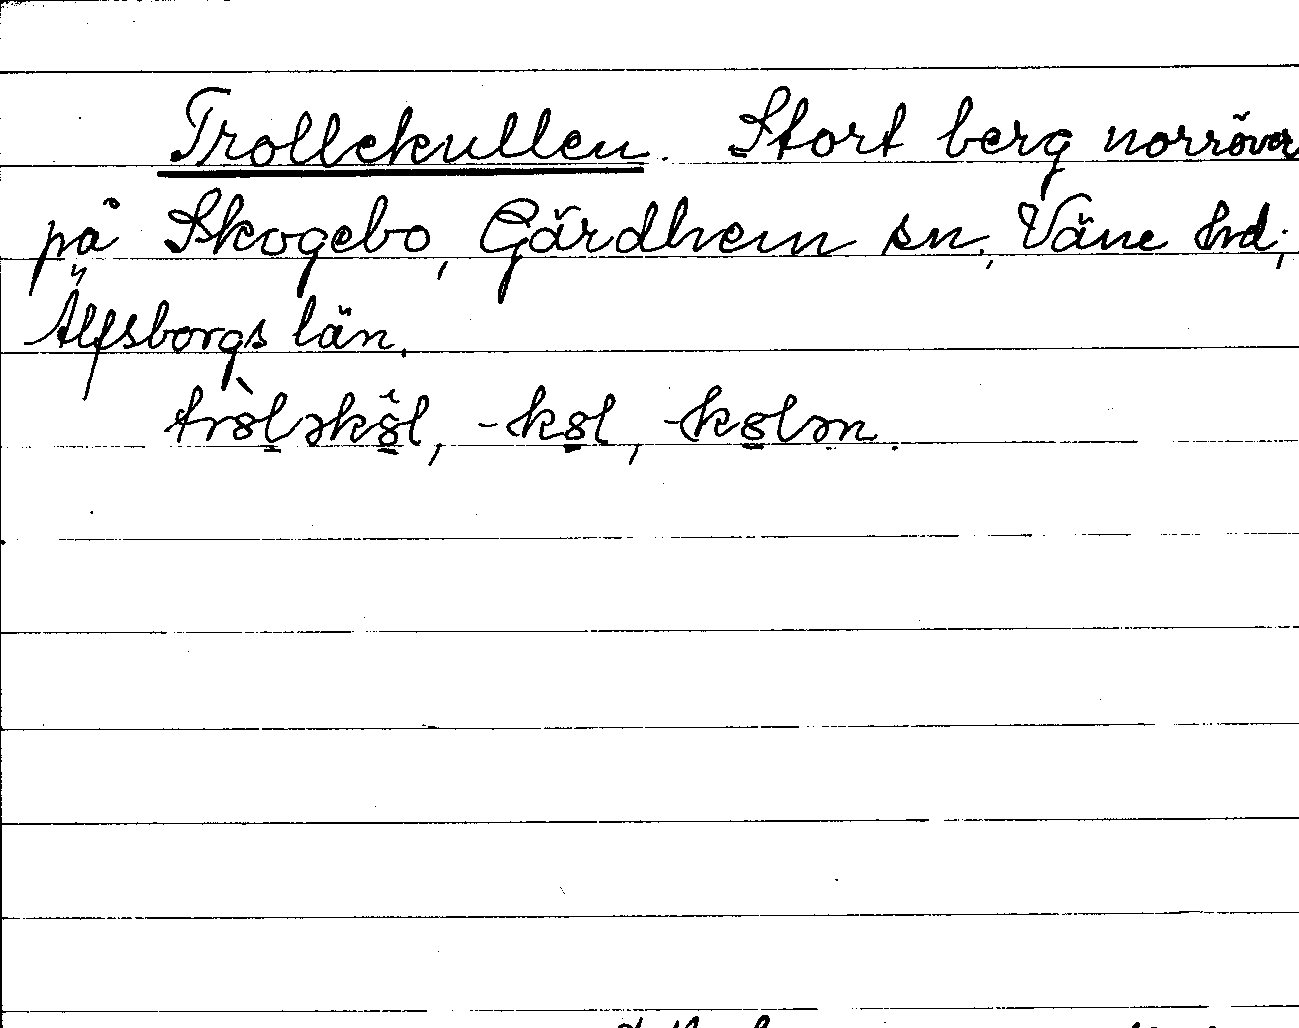 Trollekullen. Stort berg norröver
på Skogebo, Gärdhem sn, Väne hd,
Älfsborgs län.
trò̤l̲əkò̤̲l, -ko̤̲l, -ko̤̲lən.